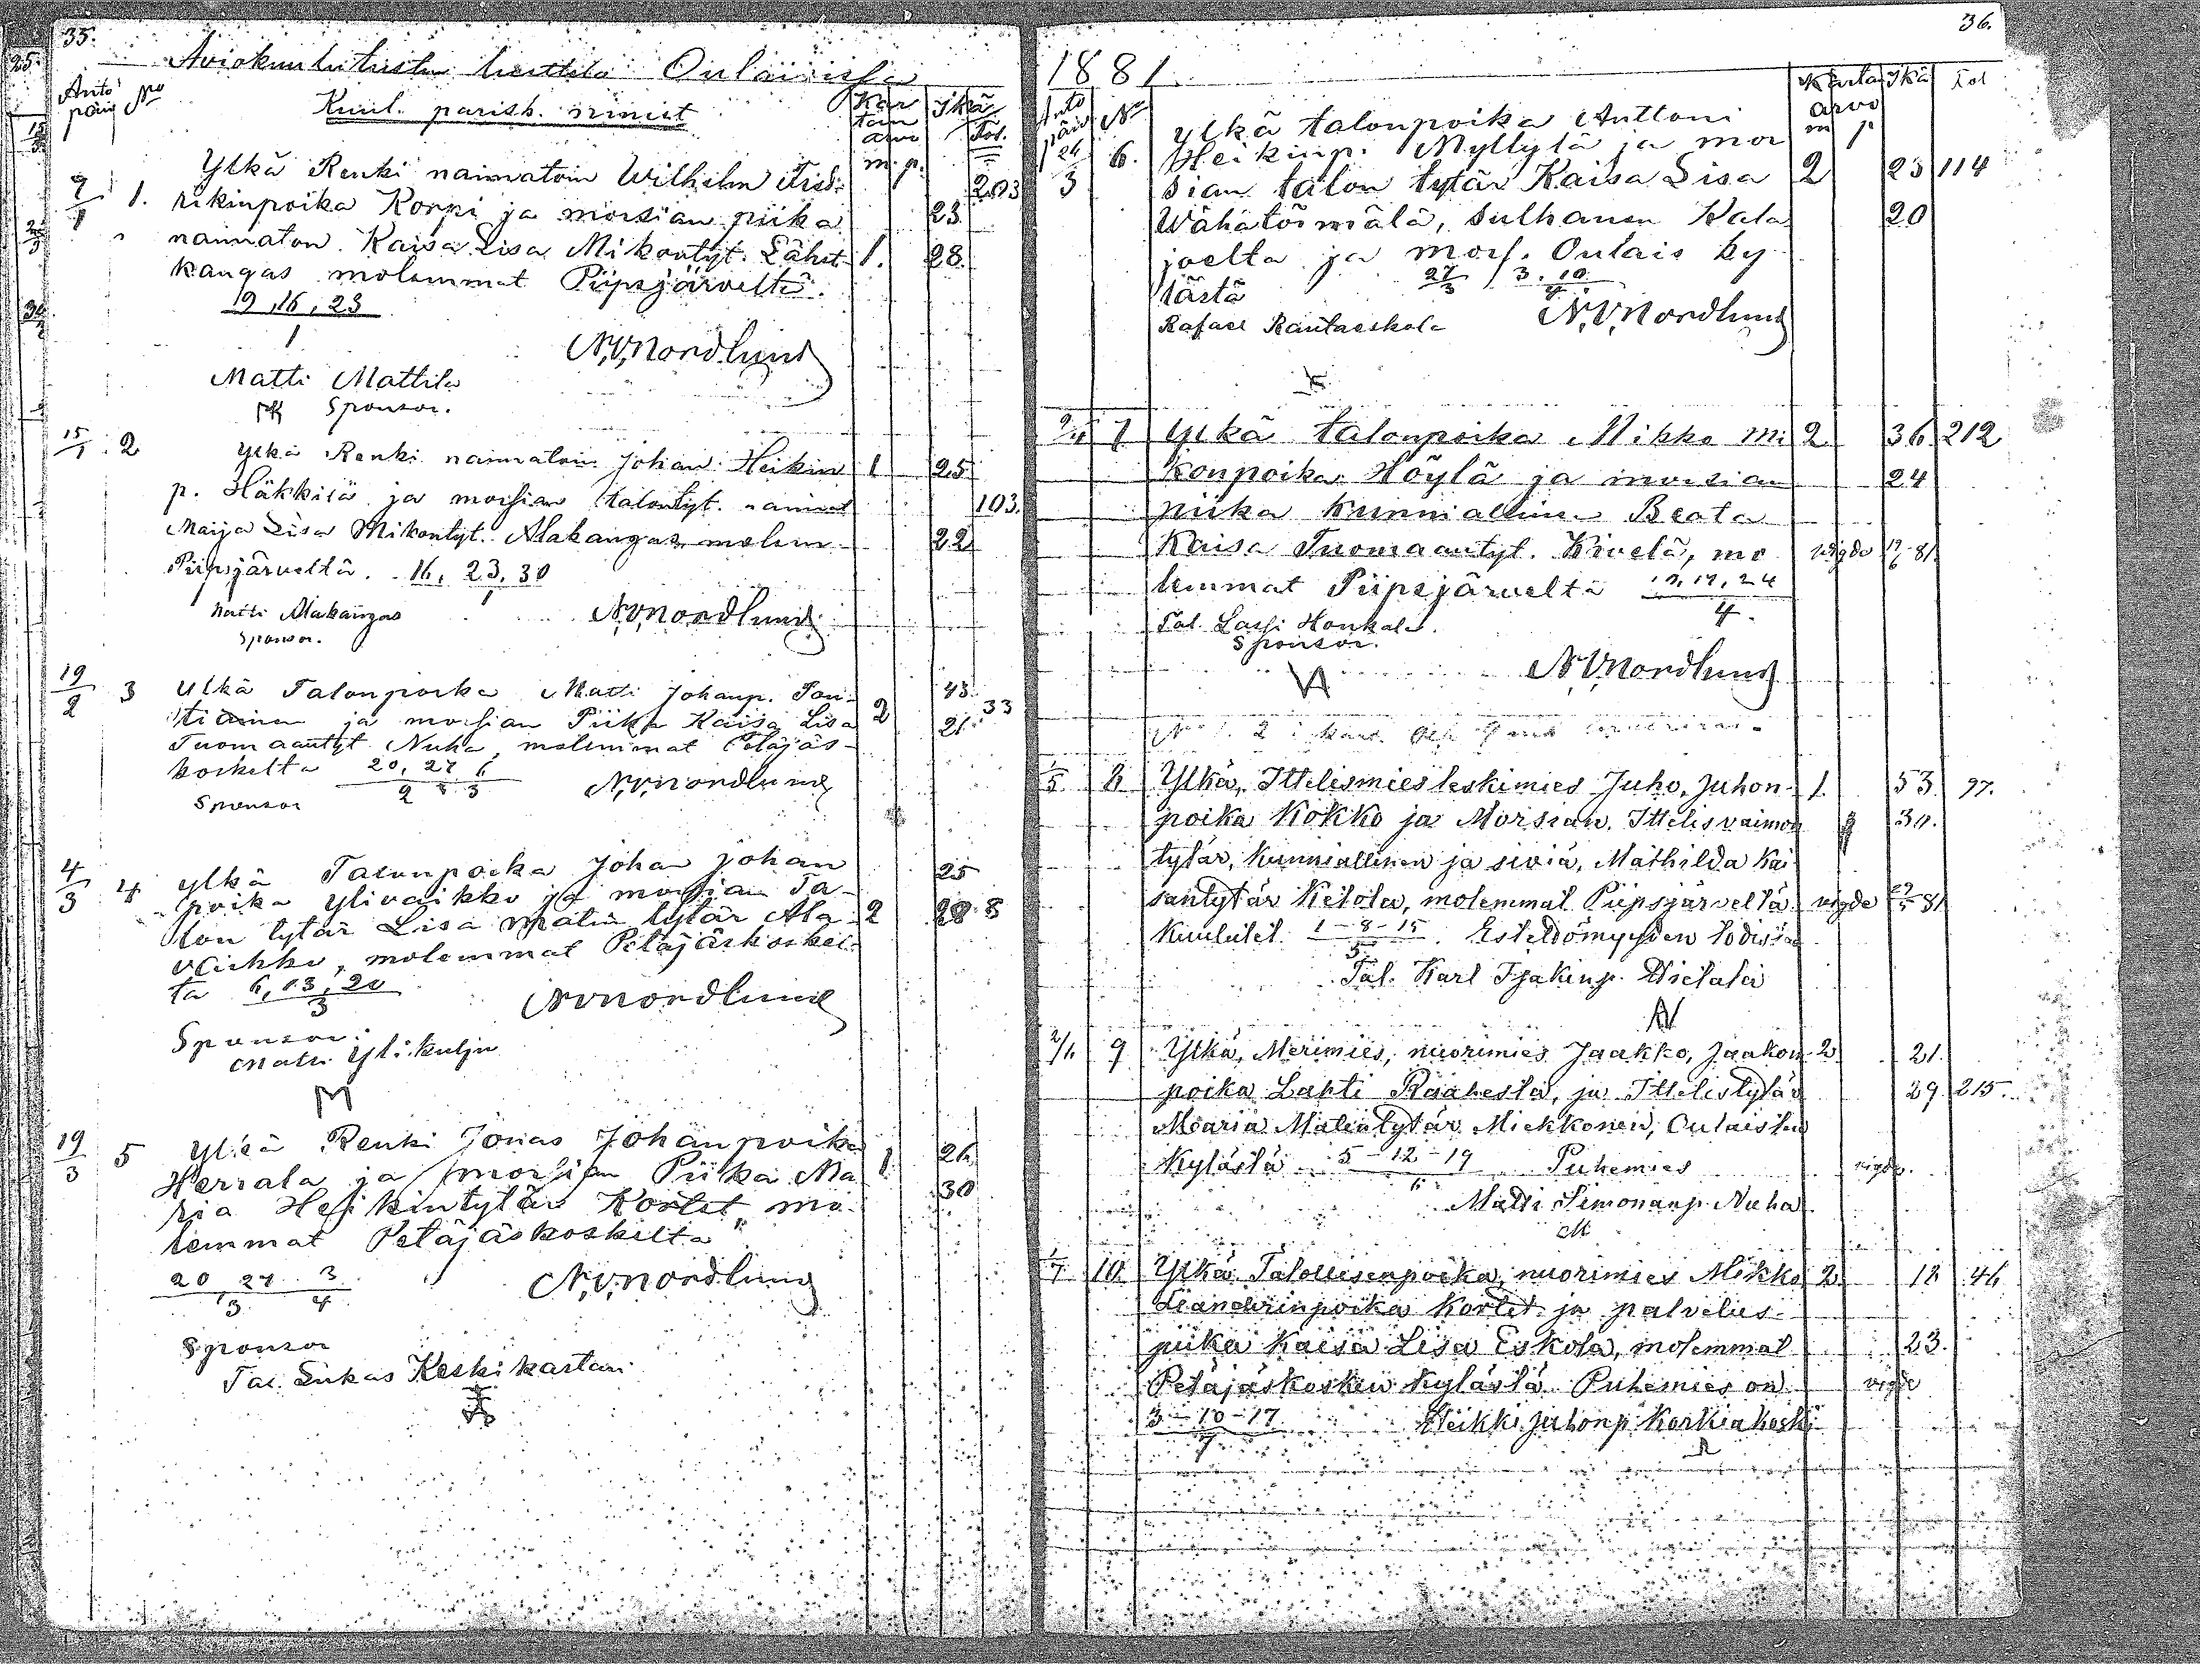 35.
Aviokuulutusten luettelo Oulaisissa
Anto päiv No
Kuul. parisk. nimet
Kartan arvo m. p.
Ikä
Fol.
9/1 1. Ylkä Renki naimatoin Wilhelm Fred- 203
rikinpoika Korpi ja morsian piika 23
naimaton Kaisa Lisa Mikontyt. Lähet- 1. 28
kangas molemmat Piipsjärveltä.
9, 16, 23
1
N.V. Nordlund
Matti Mattila
Sponsor.
15/1 2 Ylkä Renki naimatoin Johan Heikin 1 25
p. Häkkilä ja morsian talontyt. naimat 103.
Maija Lisa Mikontyt. Alakangas molem. 22
Piipsjärveltä. 16, 23, 30
1
Matti Alakangas N.V. Nordlund
Sponsor.
19/2 3 Ylkä Talonpoika Matti Johanp. Pon- 43. 33
tiainen ja morsian Piika Kaisa Lisa 2 21.
Tuomaantyt Nuha, molemmat Petäjäs-
koskelta 20, 27 6
2 3 N.V. Nordlund
Sponsor
4/3 4 Ylkä Talonpoika Johan Johan 25
poika Ylivaikko ja morsian Ta-
lon tytär Lisa Matin tytär Ala- 2 28 8
vaikko, molemmat Petäjäskoskel-
ta 6, 13, 20
3 N V Nordlund
Sponsor:
Matti Yli-kulju
19/3 5 Ylkä Renki Jonas Johanpoika 26
Herrala ja morsian Piika Ma 1. 30
ria Heikintytär Kortet mo-
lemmat Petäjäskoskelta
20 27 3
3 4 N.V. Nordlund
Sponsor
Tal. Lukas Keskikastari
36.
1881
Anto päiv No
Karta arvo m p
Ikä
Fol
Ylkä talonpoika Anttoni
24/3 6. Heikinp. Myllylä ja mor
sian talon tytär Kaisa Lisa 2 23 114
Wähätörmälä, sulhanen Kala 20
joelta ja mors. Oulais ky
lästä 27/3 3. 10/4
Rafael Rautaeskola N.V. Nordlund
9/4 7 Ylkä talonpoika Mikko Mi 2 36 212
konpoika Höylä ja morsian 24
piika kunniallinen Beata
Kaisa Tuomaantyt. Kivelä, mo vigde 17/6 81.
lemmat Piipsjärveltä 10, 17, 24
4.
Tal. Lassi Honkala.
Sponsor.
N.V. Nordlund
1/5 8 Ylkä, Ittelismies leskimies Juho, Juhon- 1. 53. 97.
poika Kokko ja Morsian. Ittelisvaimon 30.
tytär, kunniallinen ja siviä, Mathilda Kai-
santytär Ketola, molemmat Piipsjärveltä vigde 29/5 81
Kuulutet. 1-8-15 Esteldömyyden todistaa
5.
Tal. Karl Isakinp. Hietala
2/6 9 Ylkä, Merimies, nuorimies Jaakko, Jaakon- 2. 21.
poika Lahti Raahesta, ja Ittelistytär 29 215.
Maaria Matintytär Miekkonen, Oulaisten
Kylästä 5-12-19 Puhemies vigde.
6.
Matti Simonanp. Nuha
M
1/7 10. Ylkä Talollisenpoika, nuorimies Mikko 2. 18 46
Leanderinpoika Kortet ja palvelus-
piika Kaisa Lisa Eskola, molemmat 23.
Petäjäskosken Kylästä. Puhemies on vigde
3-10-17 Heikki Juhonp. Korkiakoski
7